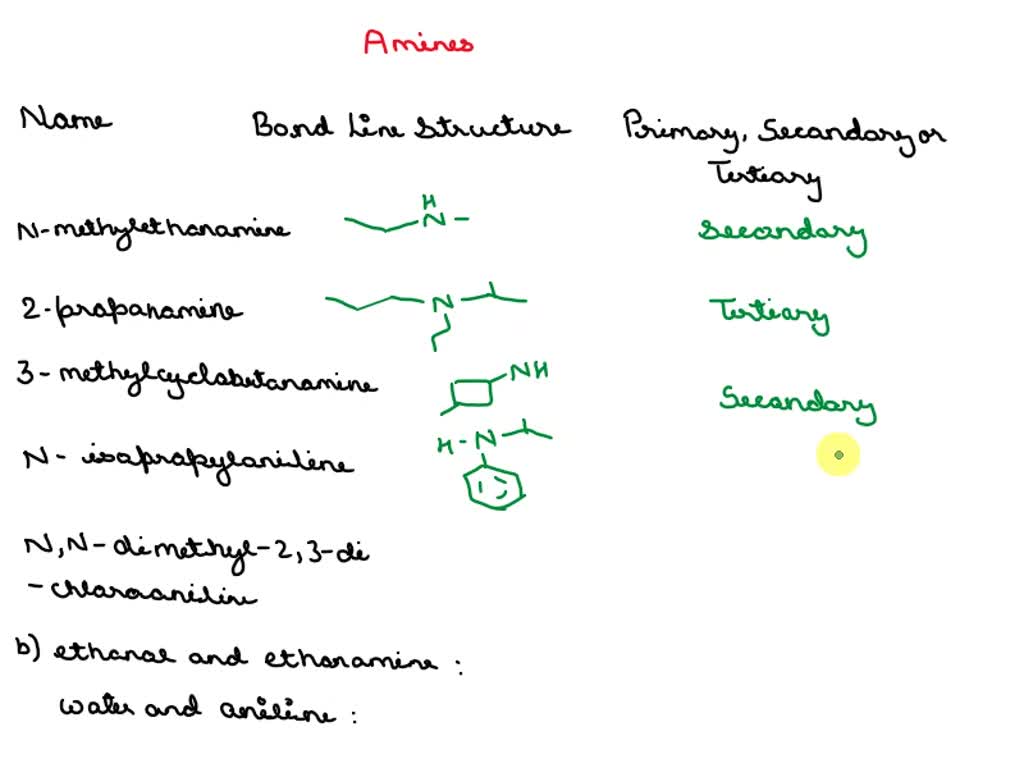 Amines
Name Bond Line Structure Primary, Secondary or
Tertiary
H
N-methylethanamine N Secondary
2-propanamine N Tertiary
3-methylcyclobutanamine NH Secondary
H-N
N-isopropylaniline
N,N-dimethyl-2,3-di
-chloroaniline
b) ethanol and ethanamine :
water and aniline :